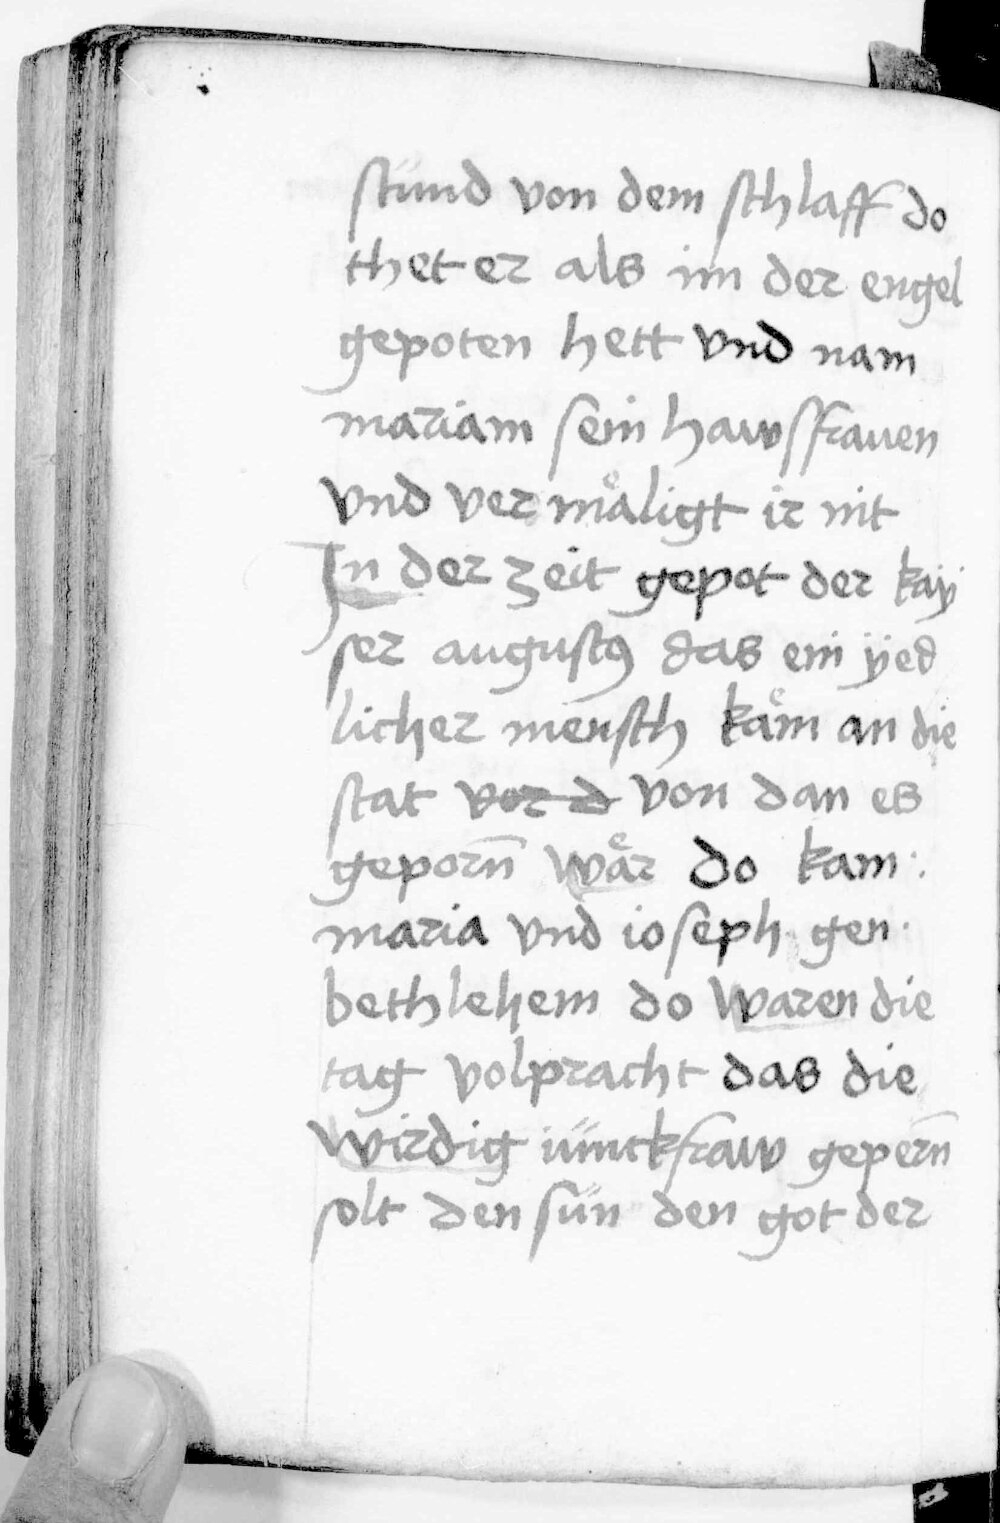 stünd von dem schlaff do
thet er als im der engel
gepoten hett vnd nam
mariam sein hawsfrauen
vnd vermaͤligt ir nit
In der zeit gepot der kaÿ
ser augustꝰ das ein ÿed
licher mensch kaͤm an die
stat vor d von dan es
geporn̄ waͤr do kam :
maria vnd ioseph gen :
bethlehem do waren die
tag volpracht das die
wirdig iünckfraw gepern̄
solt den sün den got der